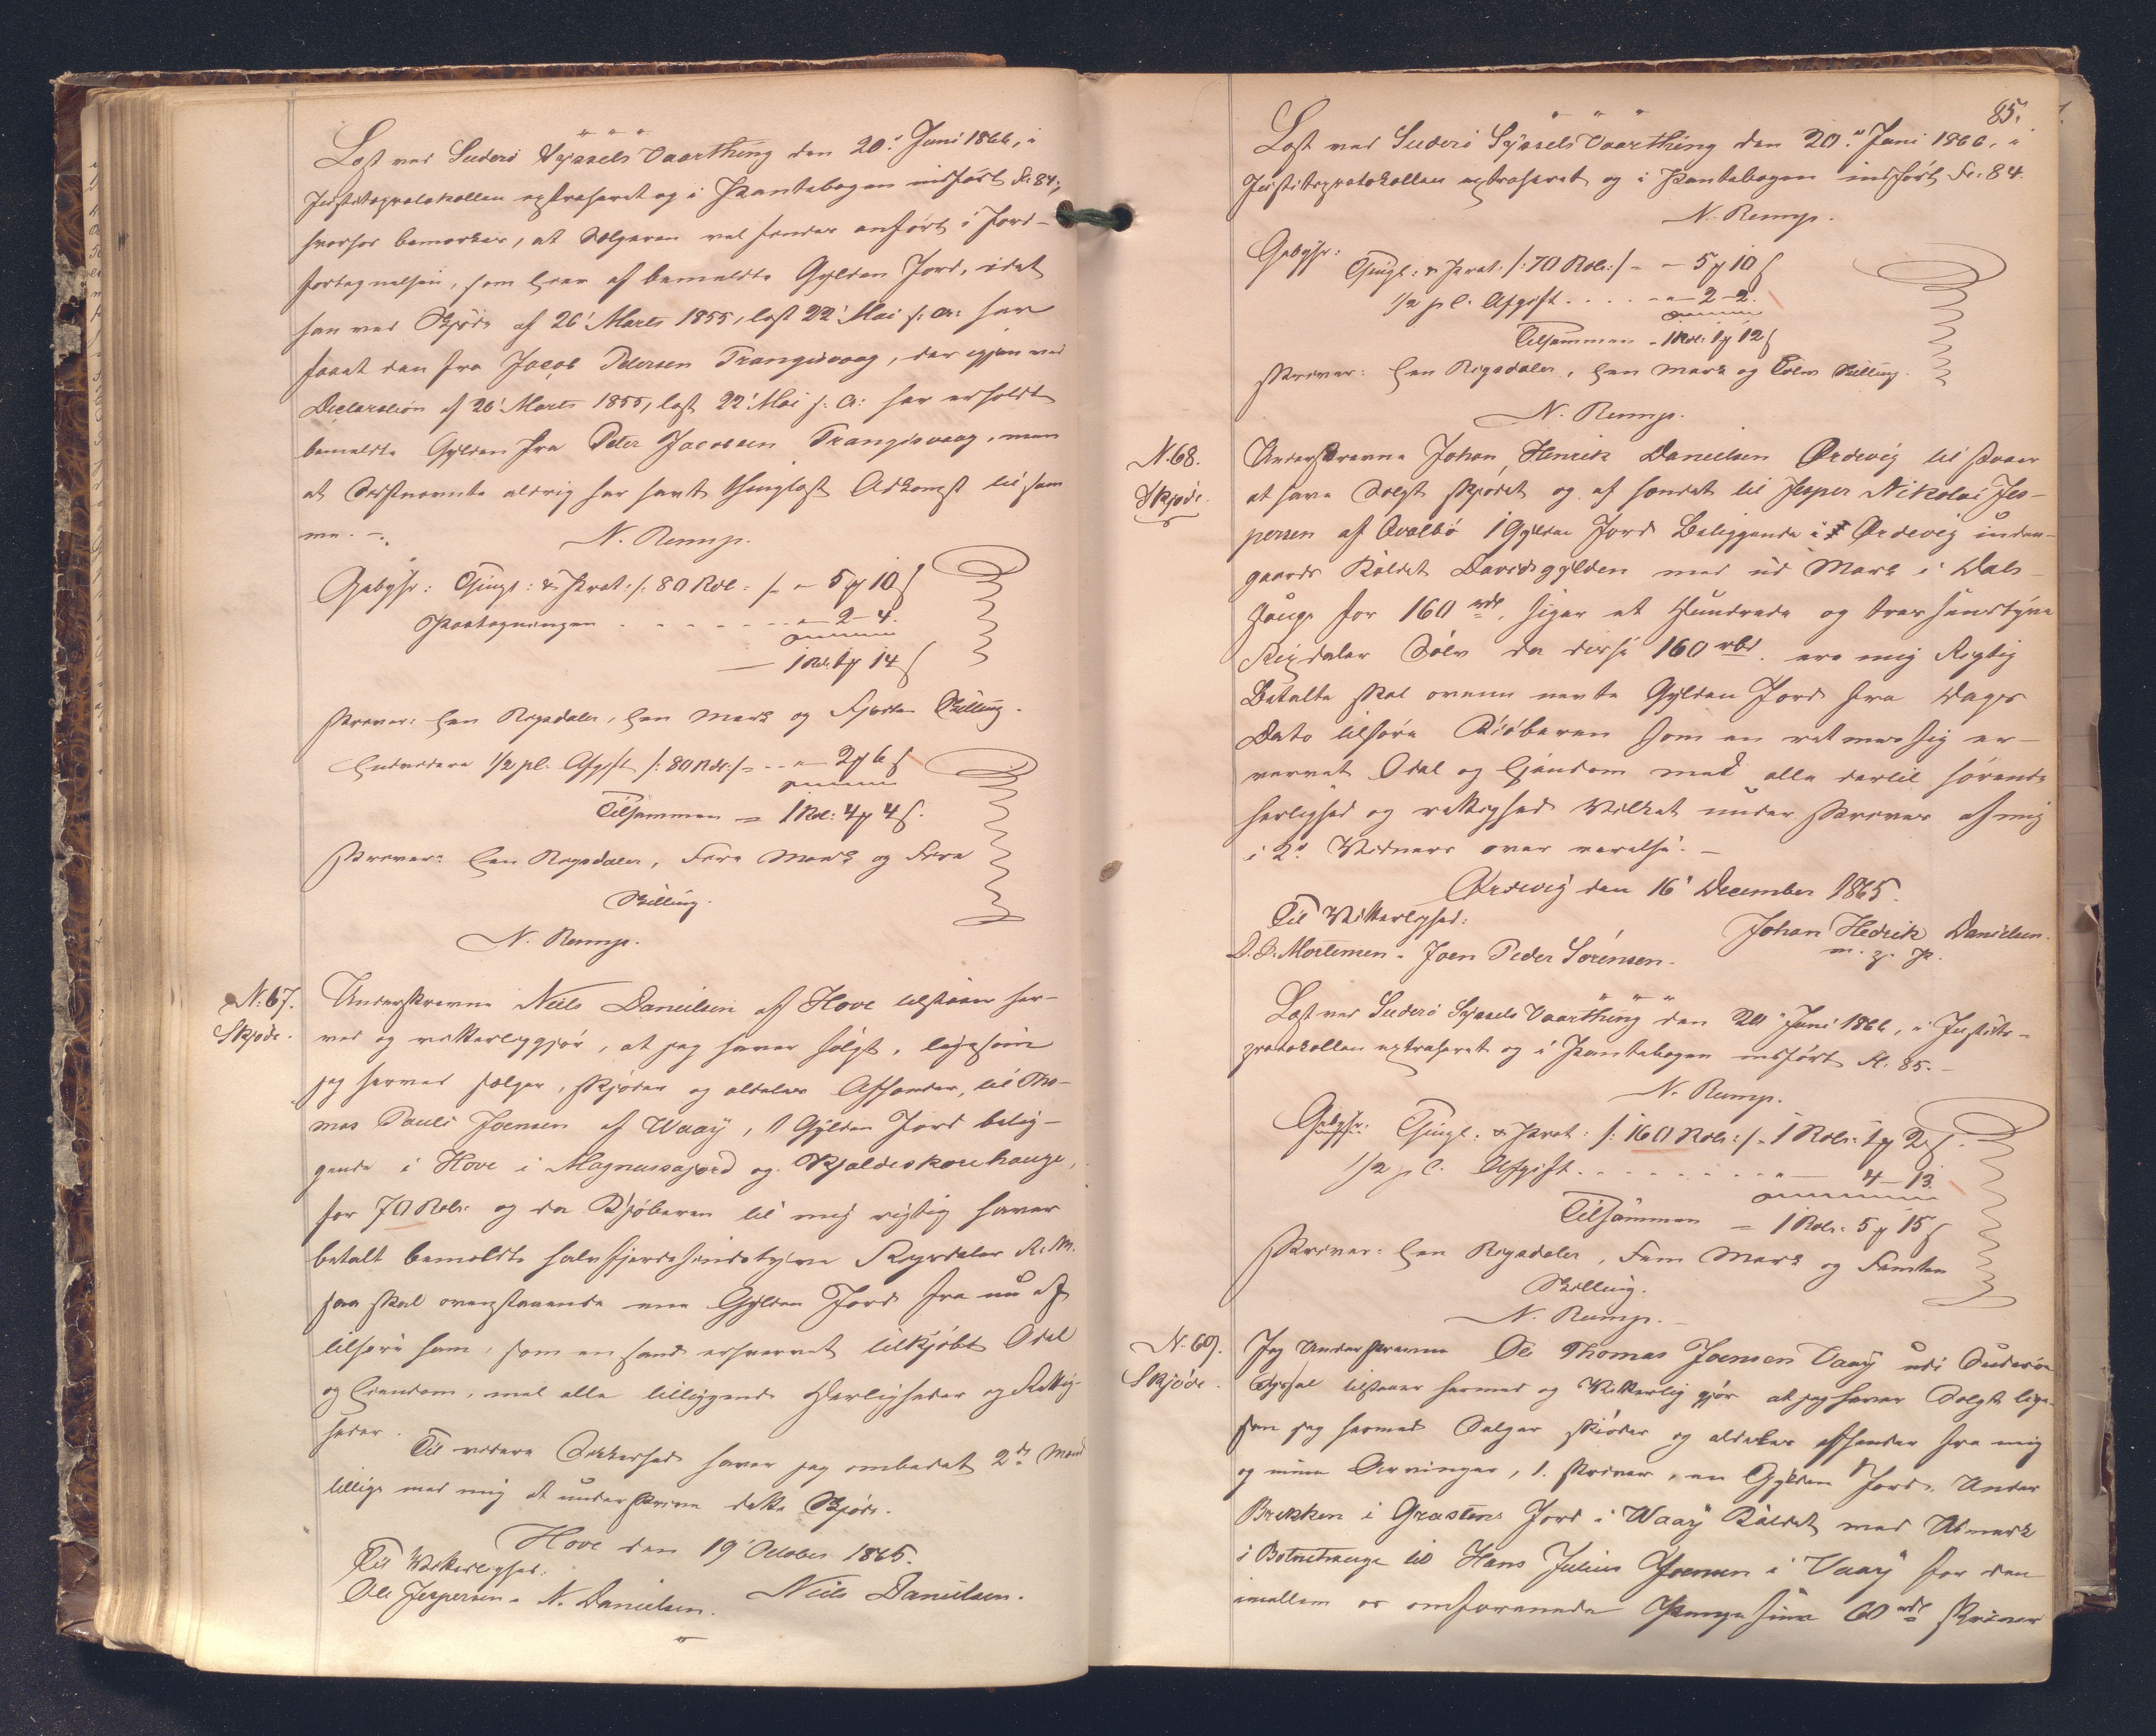 Læst ved Suderø Syssels Vaarthing den 20. Juni 1866, i
Justitsprotokollen extraheret og i Pantebogen indført Fol. 84,
hvorhos bemærkes, at Sælgeren vel findes anført i Jord-
fortegnelsen, som Eier af bemeldte Gylden Jord, idet
han ved Skjøde af 26' Marts 1855, læst 22' Mai s: A: har
faaet den fra Jacob Petersen Trangisvaag, der igjen ved
Declaration af 26' Marts 1855, læst 22' Mai s: A: har erholdt
bemeldte Gylden fra Peter Jacobsen Trangisvaag, men
at Sidstnævnte aldrig har havt thinglæst Adkomst til sam
me. -
N. Remp.
Gebyhr: Thingl: & Prot: /: 80 Rdl: /: - 5 ꝳ 10 ß
Paategningen - - - - - - - 2 - 4.
1 Rdl. 1 ꝳ 14 ß
skriver: Een Rigsdaler, Een Mark og Fjorten Skilling.
Endvidere 1/2 pC. Afgift /: 80 Rdl: /: - - - 2 ꝳ 6 ß
Tilsammen = 1 Rdl: 4 ꝳ 4 ß.
skriver: Een Rigsdaler, Fire Mark og Fire
Skilling.
N. Remp.
N. 67.
Skjøde.
Underskrevne Niels Danielsen af Hove tilstaaer her-
ved og vitterliggjør, at jeg haver solgt, ligesom
jeg herved sælger, skjøder og aldeles Afhænder, til Tho-
mas Pauli Joensen af Waaÿ, 1 Gylden Jord belig-
gende i Hove i Magnussajord og Kjaldeskorehauge,
for 70 Rdlr. og da Kjøberen til mig rigtig haver
betalt bemeldte halvfjerdesindstyve Rigsdaler R.M.
saa skal ovenstaaende ene Gylden Jord fra nu af
tilhøre ham, som en sand erhvervet tilkjøbt Odel
og Eiendom, med alle tilliggende Herligheder og Rettig-
heder.
Til videre Sikkerhed haver jeg ombedet 2de Mænd
tillige med mig at underskrive dette Skjøde.
Hove den 19' October 1865.
Til Vitterlighed:
Ole Jespersen - N. Danielsen. Niels Danielsen.
85.
Læst ved Suderø Syssels Vaarthing den 20. Juni 1866, i
Justitsprotokollen extraheret og i Pantebogen indført Fol. 84.
N. Remp.
Gebyhr:
Thingl: & Prot: /: 70 Rdlr: /: - - 5 ꝳ 10 ß
1/2 pC. Afgift . . . . - - 2 - 2.
Tilsammen - 1 Rdl: 1 ꝳ 12 ß
skriver: Een Rigsdaler, Een Mark og Tolv Skilling.
N. Remp.
N. 68.
Skjøde.
Underskrevne Johan Henrik Danielsen Ørdevig til staaer
at have Solgt skjødet og af hændet til Jesper Nikolai Jes-
persen af Qvalbø 1 Gylden Jord Beliggende i Ørdevig inden-
gaards Kaldet Davidsgylden med ud Mark i Dals
hauge for 160 rdl. siger et Hundrede og tresindstÿve
Rigsdaler Sølv da disse 160 rbd. ere mig Rigtig
Betalte skal ovenn nevte Gylden Jord fra Dags
Dato tilhøre Kiøberen som en ret mæssig er-
vervet Odel og Ejendom med alle dertil hørende
herlighed og rettighed Vilket under skrives af mig
i 2de Vidners over værelse. -
Ørdevig den 16' December 1865.
Til Vitterlighed:
D. D. Mortensen - Joen Peder Sørensen. Johan Hedrik Danielsen.
m. p. P.
Læst ved Suderø Syssels Vaarthing den 20' Juni 1866, i Justits-
protokollen extraheret og i Pantebogen indført Fol. 85. -
N. Remp.
Gebyhr: Thingl: & Prot: /: 160 Rdlr: /: 1 Rdlr: 1 ꝳ 2 ß.
1/2 pC. Afgift . . . . . . . . - 4 - 13.
Tilsammen = 1 Rdlr: 5 ꝳ 15 ß
skriver: Een Rigsdaler, Fem Mark og Femten
Skilling.
N. Remp. -
N. 69.
Skjøde.
Jeg Underskrevne Ole Thomas Joensen Vaaÿ udi Suderøe
Syssel tilstaaer hermed og Vitterlig gjør at jeg haver Solgt lige-
som jeg hermed Sælger skiøder og aldeles afhænder fra mig
og mine Arvinger, 1. skriver, en Gylden Jord. Under
Brekken i Grastens Jord i Waaÿ Kaldet med Udmark
i Botnehauge til Hans Julius Joensen i Vaaÿ for den
imellem os omforenede Penge Sum 60 rdl skriver